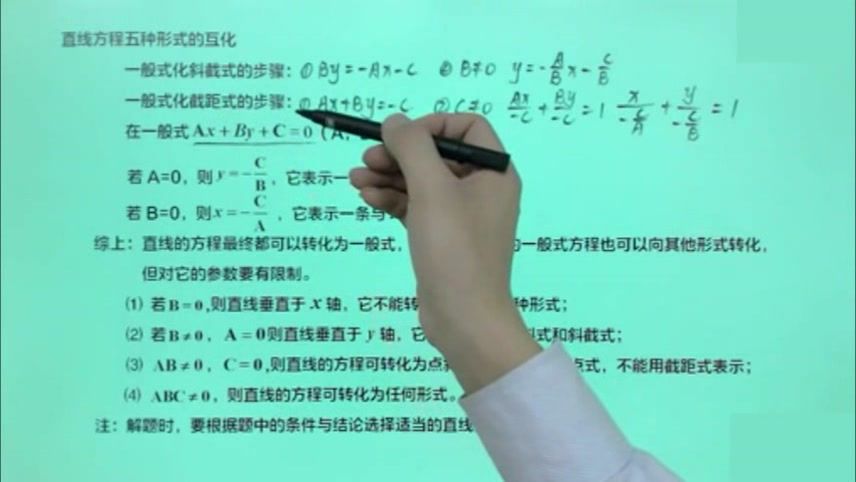 直线方程五种形式的互化
一般式化斜截式的步骤：① By=-Ax-C ② B≠0 y=-\frac{A}{B}x-\frac{C}{B}
一般式化截距式的步骤：① Ax+By=-C ② C≠0 \frac{Ax}{-C}+\frac{By}{-C}=1 \frac{x}{-\frac{C}{A}}+\frac{y}{-\frac{C}{B}}=1
在一般式 Ax+By+C=0（A，
若 A=0，则 y=-\frac{C}{B}，它表示一
若 B=0，则 x=-\frac{C}{A}，它表示一条与
综上：直线的方程最终都可以转化为一般式， 的一般式方程也可以向其他形式转化，
但对它的参数要有限制。
⑴ 若 B=0,则直线垂直于 x 轴，它不能转 种形式；
⑵ 若 B≠0，A=0则直线垂直于 y 轴，它 斜式和斜截式；
⑶ AB≠0，C=0,则直线的方程可转化为点 点式，不能用截距式表示；
⑷ ABC≠0，则直线的方程可转化为任何形式。
注：解题时，要根据题中的条件与结论选择适当的直线